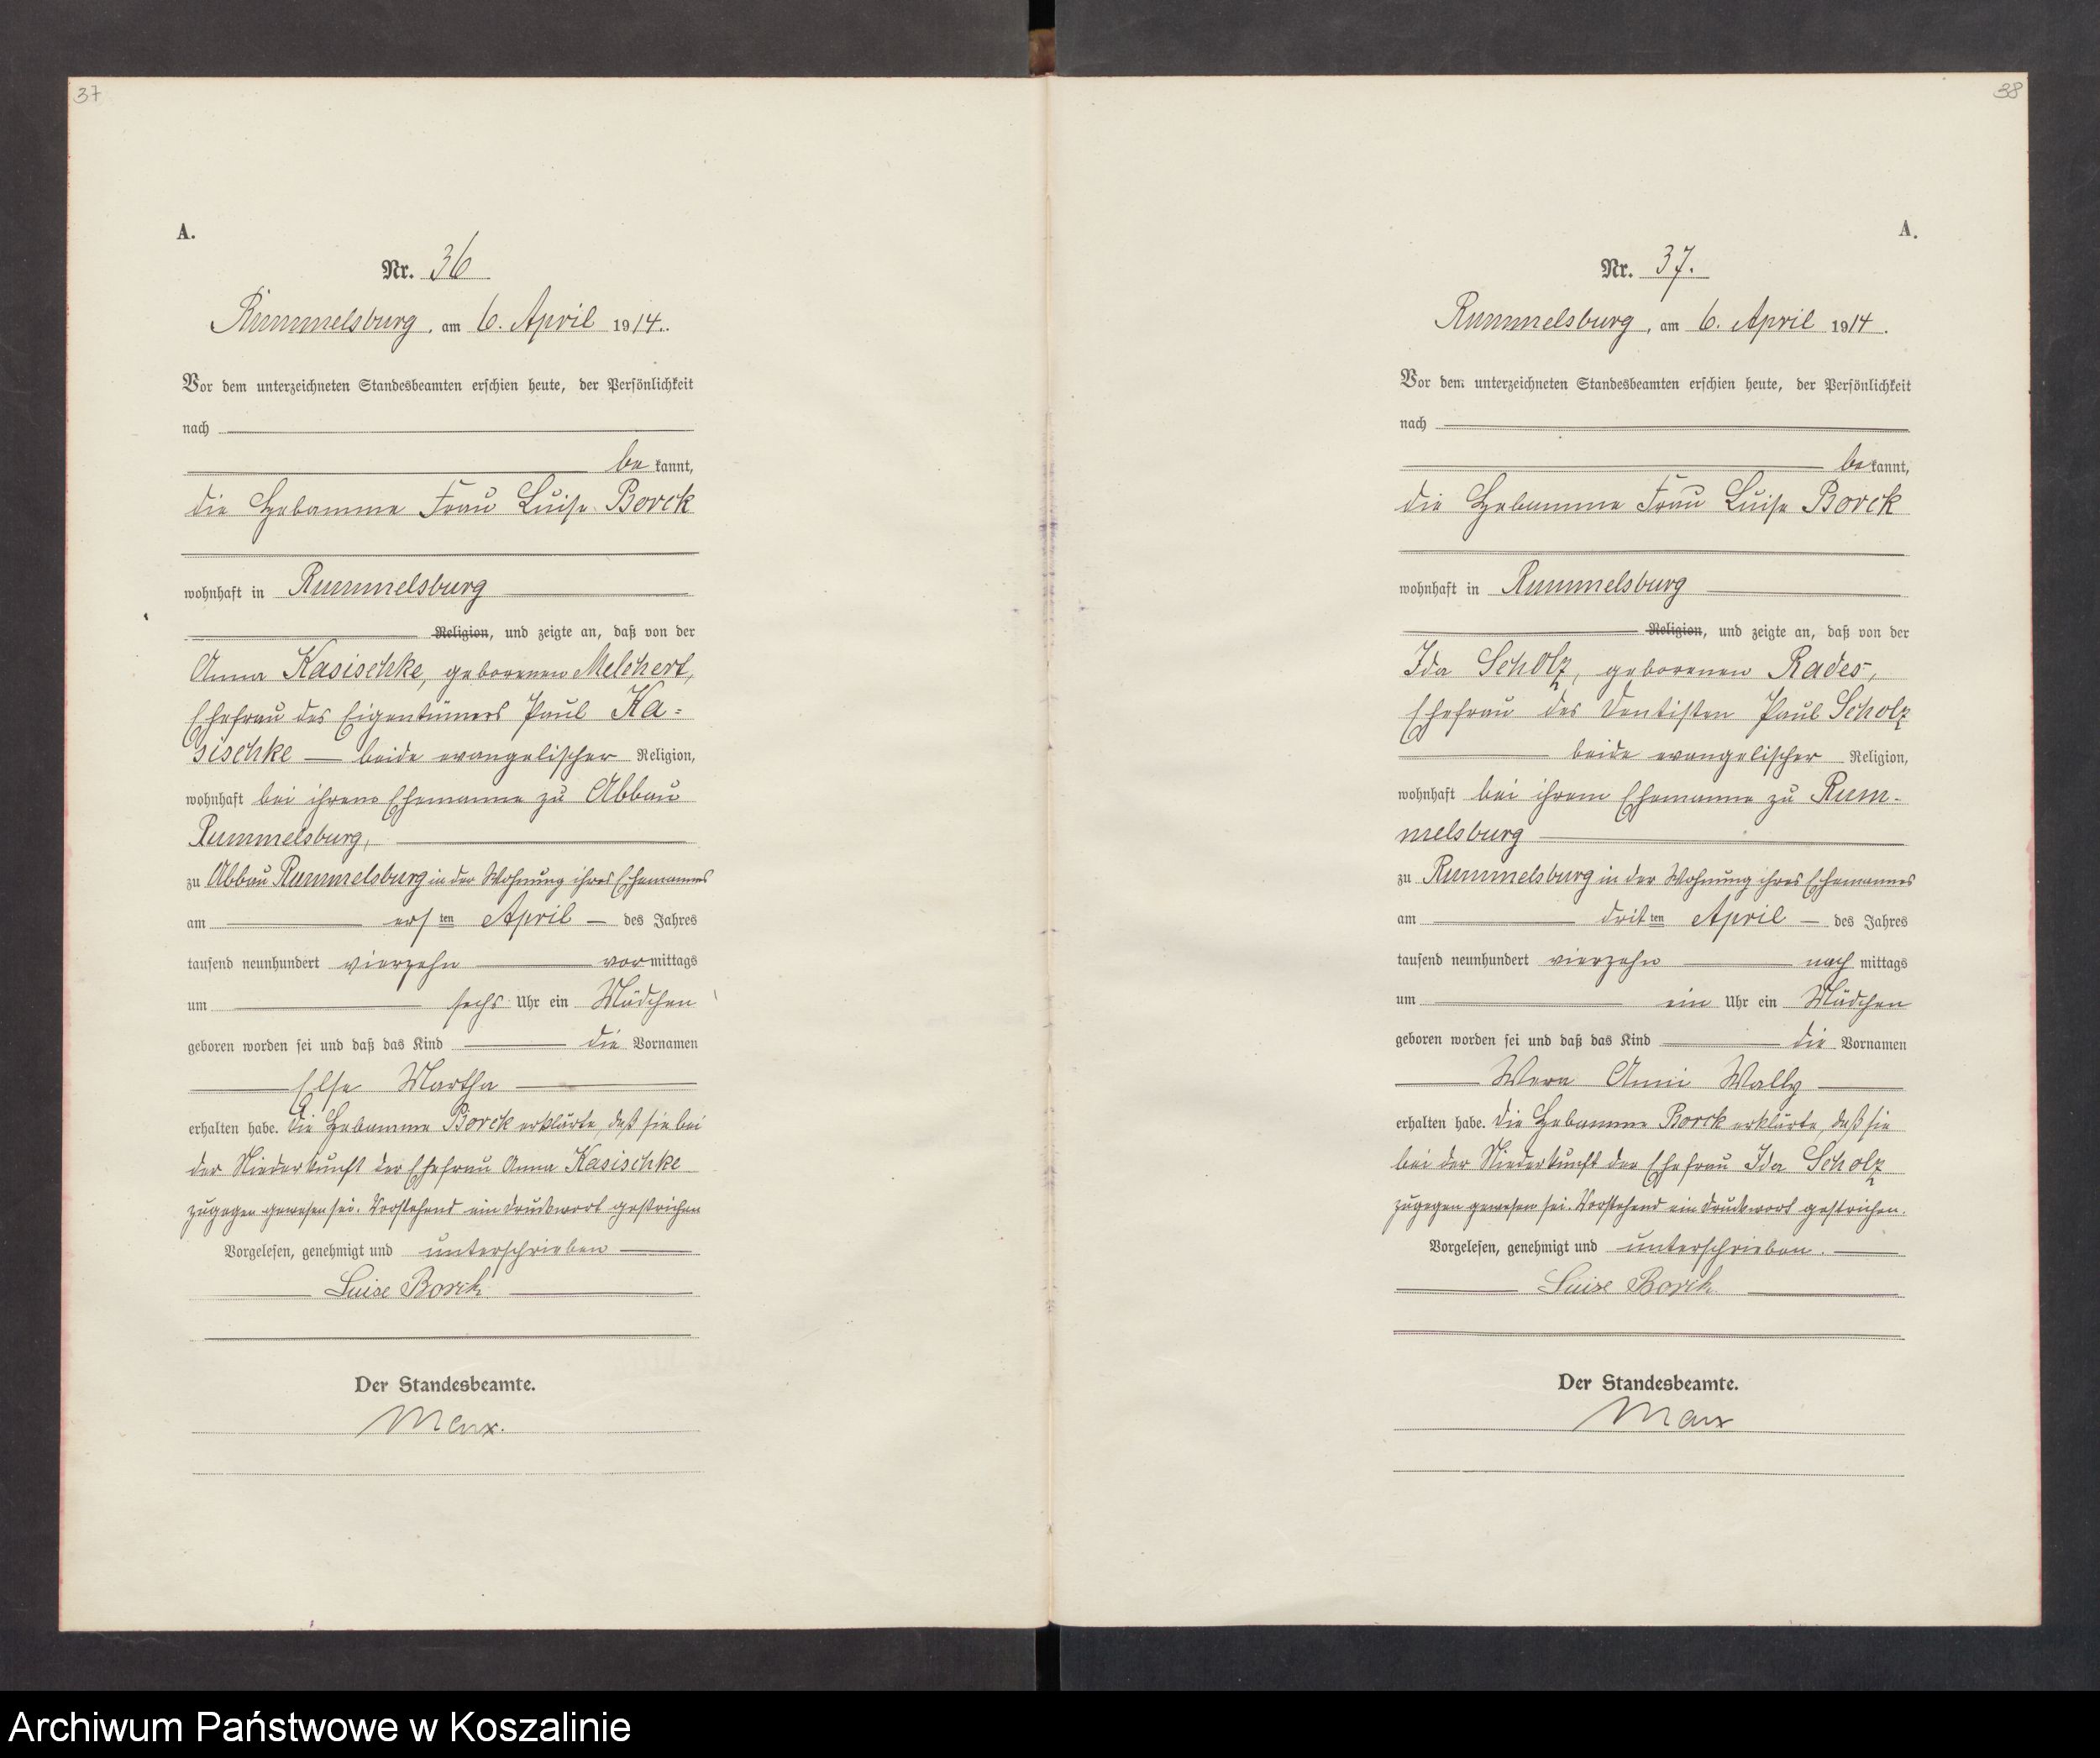 37
A.
Nr. 36
Rummelsburg, am 6. April 1914.
Vor dem unterzeichneten Standesbeamten erschien heute, der Persönlichkeit
nach
be kannt,
die Hebamme Frau Luise Borck
wohnhaft in Rummelsburg
Religion, und zeigte an, daß von der
Anna Kasischke, geborenen Melchert,
Ehefrau des Eigentümers Paul Ka=
sischke — beide evangelischer Religion,
wohnhaft bei ihrem Ehemanne zu Abbau
Rummelsburg,
zu Abbau Rummelsburg in der Wohnung ihres Ehemannes
am ersten April — des Jahres
tausend neunhundert vierzehn vormittags
um sechs Uhr ein Mädchen
geboren worden sei und daß das Kind die Vornamen
Else Martha
erhalten habe. Die Hebamme Borck erklärte, daß sie bei
der Niederkunft der Ehefrau Anna Kasischke
zugegen gewesen sei. Vorstehend ein Druckwort gestrichen
Vorgelesen, genehmigt und unterschrieben
Luise Borck.
Der Standesbeamte.
Marx.
38
A.
Nr. 37.
Rummelsburg, am 6. April 1914.
Vor dem unterzeichneten Standesbeamten erschien heute, der Persönlichkeit
nach
be kannt,
die Hebamme Frau Luise Borck
wohnhaft in Rummelsburg
Religion, und zeigte an, daß von der
Ida Scholz, geborenen Rades,
Ehefrau des Dentisten Paul Scholz
beide evangelischer Religion,
wohnhaft bei ihrem Ehemanne zu Rum-
melsburg
zu Rummelsburg in der Wohnung ihres Ehemannes
am dritten April — des Jahres
tausend neunhundert vierzehn nach mittags
um ein Uhr ein Mädchen
geboren worden sei und daß das Kind die Vornamen
Wera Anni Wally
erhalten habe. Die Hebamme Borck erklärte, daß sie
bei der Niederkunft der Ehefrau Ida Scholz
zugegen gewesen sei. Vorstehend ein Druckwort gestrichen.
Vorgelesen, genehmigt und unterschrieben.
Luise Borck
Der Standesbeamte.
Marx
Archiwum Państwowe w Koszalinie